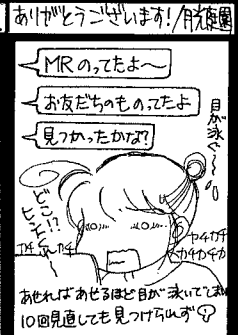 ありがとうございます!/月光庭園
MRのってたよ〜
お友だちのものってたよ
見つかったかな?
目が泳ぐ〜
どこ!?
ヒィヒィ
カチ カチ
カチカチ
カチカチカチ
あせればあせるほど目が泳いでしまい
10回見直しても見つけられず